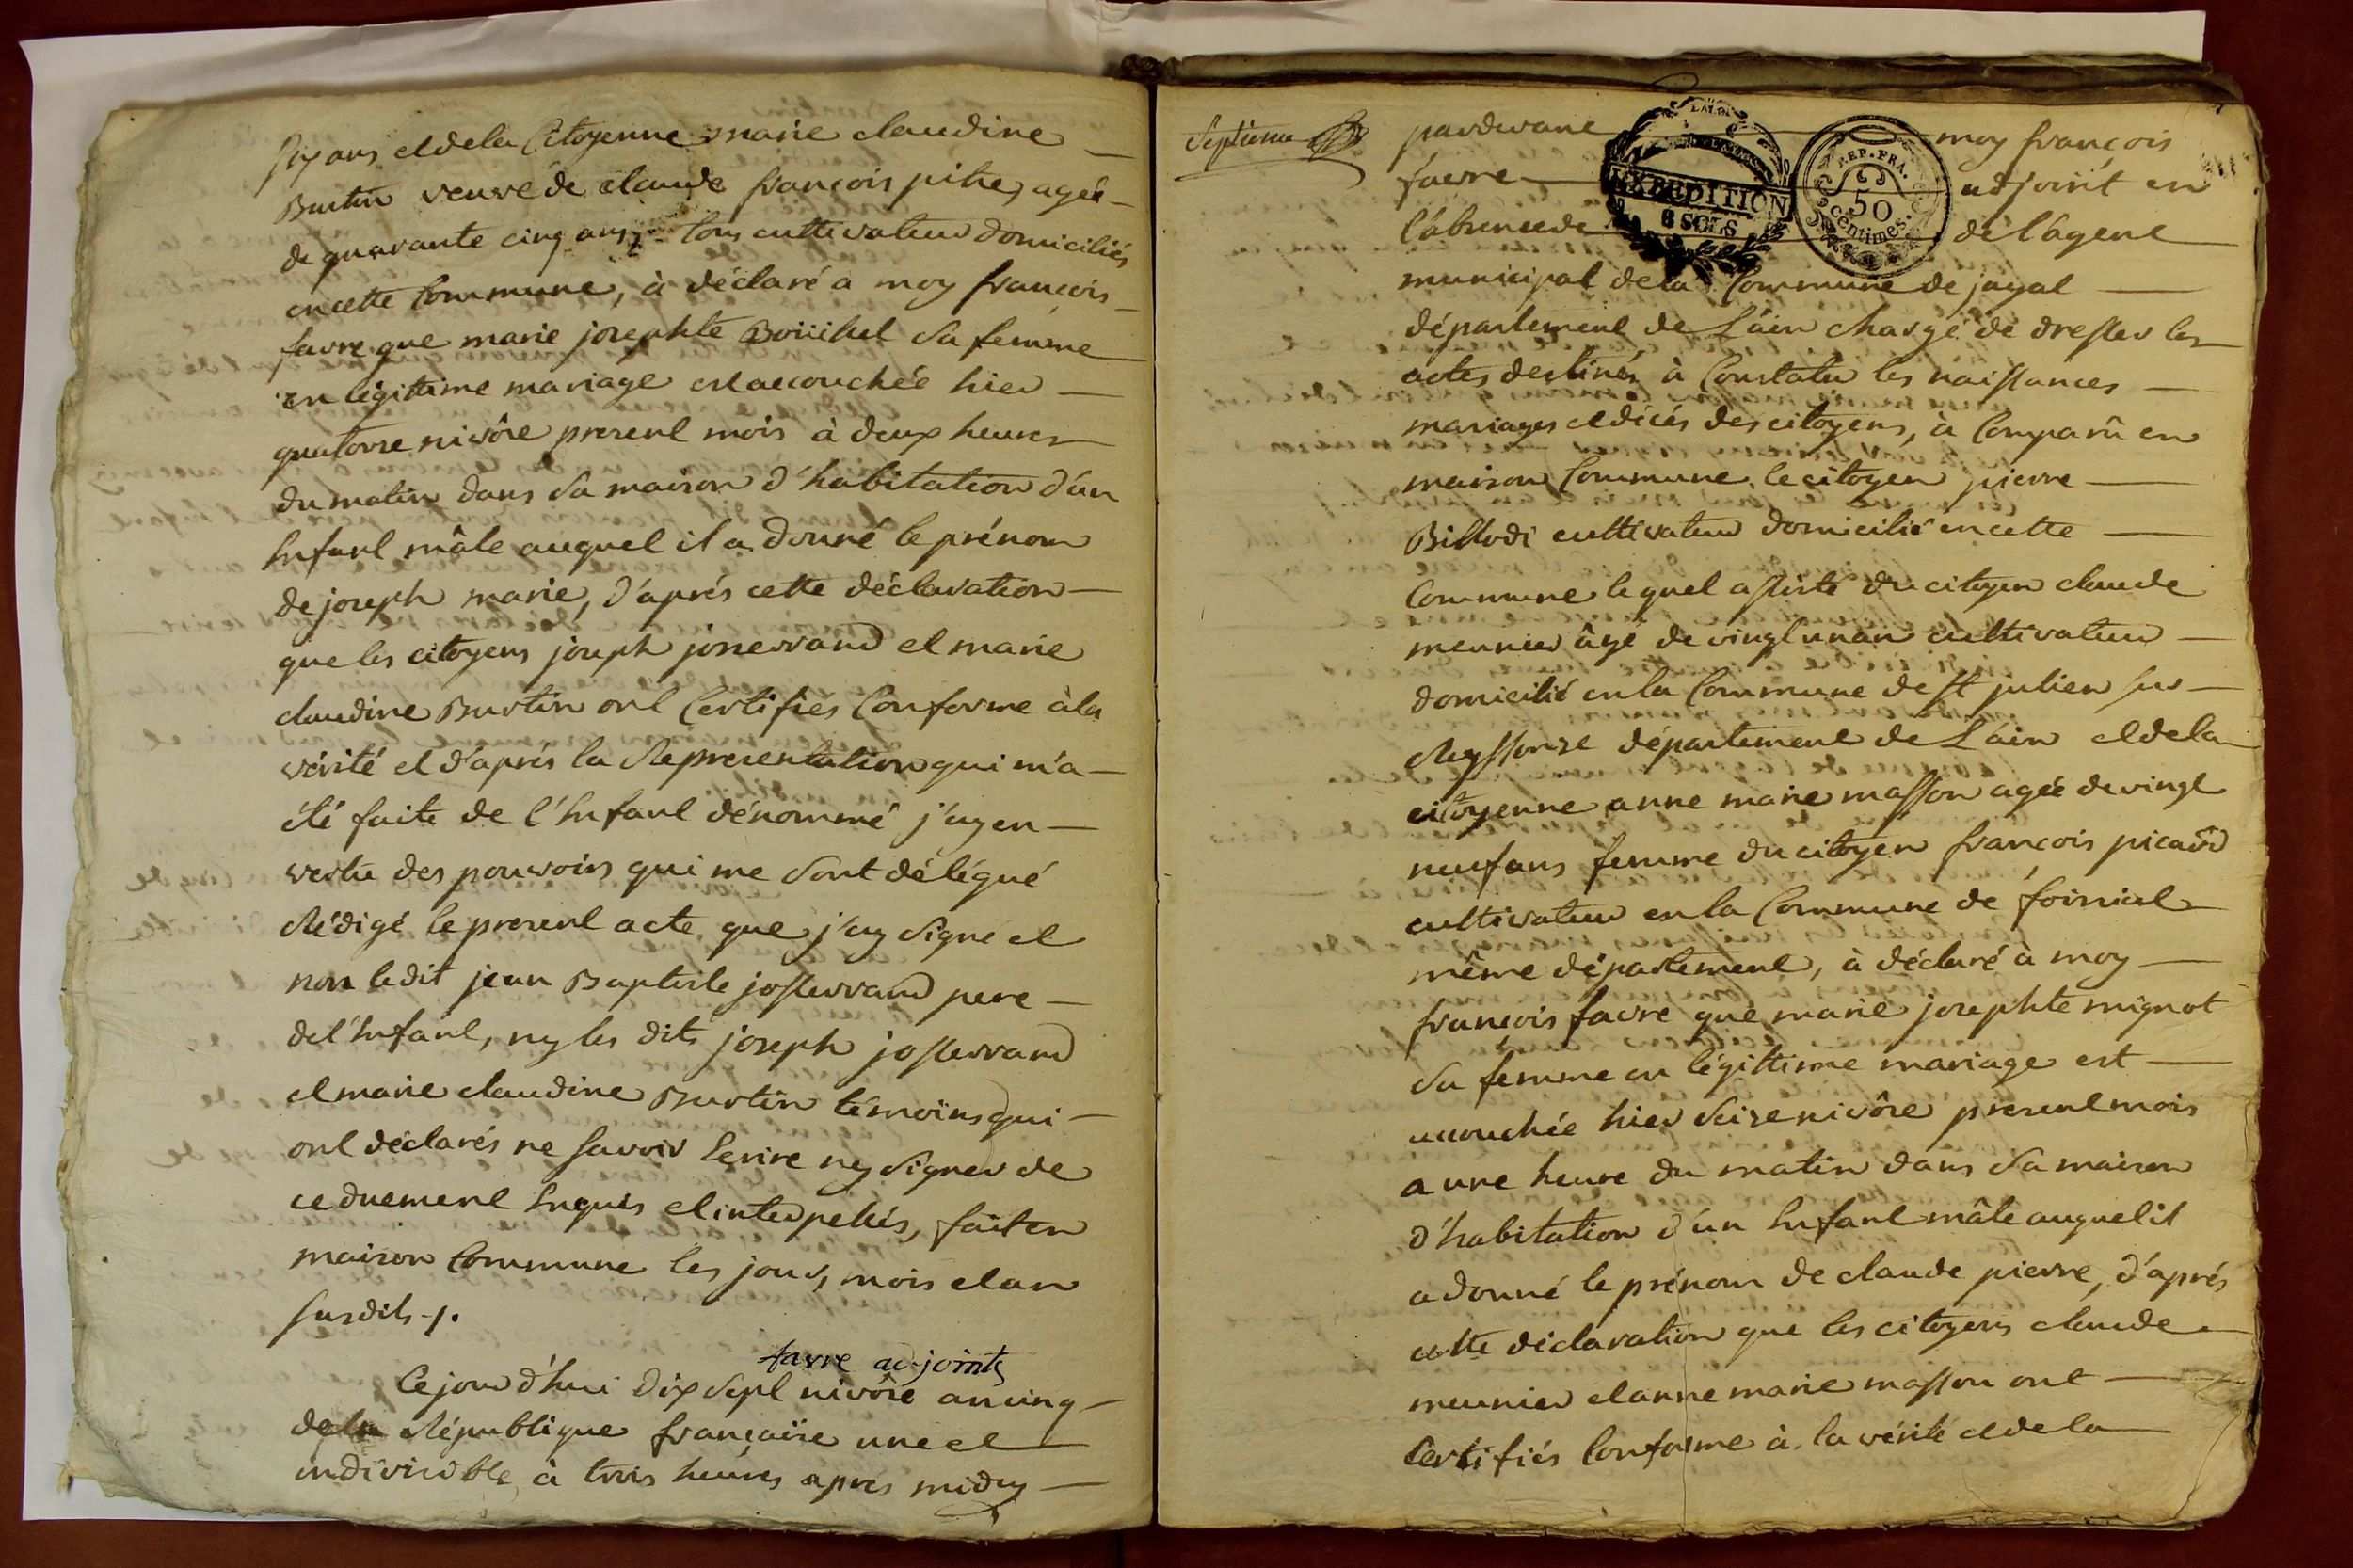 six ans et de la Citoyenne marie claudine
Burtin veuve de claude françois pitre, agée
de quarante cinq ans, tous cultivateur domiciliés
en cette Commune, à déclaré a moy françois
favre que marie josephte Boüilut sa femme
en légittime mariage est accouchée hier
quatorze nivôse present mois à deux heures
du matin dans sa maison d'habitation d'un
Enfant mâle auquel il a donné le prénom
de joseph marie, d'après cette déclaration
que les citoyens joseph josserrand et marie
claudine Burtin ont Certifiés Conforme à la
vérité et d'après la Representation qui m'a
été faite de l'Enfant dénommé j'ay en
vertu des pouvoirs qui me sont délégué
Rédigé le present acte que j'ay signe et
non ledit jean Baptiste josserrand pere
del'Enfant, ny les dits joseph josserrand
et marie claudine Burtin témoins qui
ont déclarés ne savoir Ecrire ny signer de
ce duement Enquis et interpellés, fait en
maison Commune les jour, mois et an
susdits ./.
favre adjoints
Cejourd'hui dix sept nivôse an cinq
de la République française une et
indivisible à trois heures apres midy
Septieme
pardevant moy françois
favre adjoint en
l'absence de de l'agent
LA LOI
EXPEDITION
6 SOLS
REP. FRA.
50
centimes.
municipal de la Commune de jayat
département de L'ain chargé de dresser les
actes destinés à Constater les naissances
mariages et décés des citoyens, à Comparû en
maison Commune le citoyen pierre
Billodi cultivateur domicilié en cette
Commune lequel assisté du citoyen claude
meunier âgé de vingt un an cultivateur
domicilié en la Commune de St julien sur
Reyssouze département de L'ain et de la
citoyenne anne marie masson agée de vingt
neuf ans femme du citoyen françois picard
cultivateur en la Commune de foissiat
même département, à déclaré à moy
françois favre que marie josephte mignot
sa femme en légittime mariage est
accouchée hier seize nivôse present mois
a une heure du matin dans sa maison
d'habitation d'un Enfant mâle auquel il
a donné le prénom de claude pierre, d'aprés
cette déclaration que les citoyens claude
meunier et anne marie masson ont
Certifiés Conforme à la vérité et de la